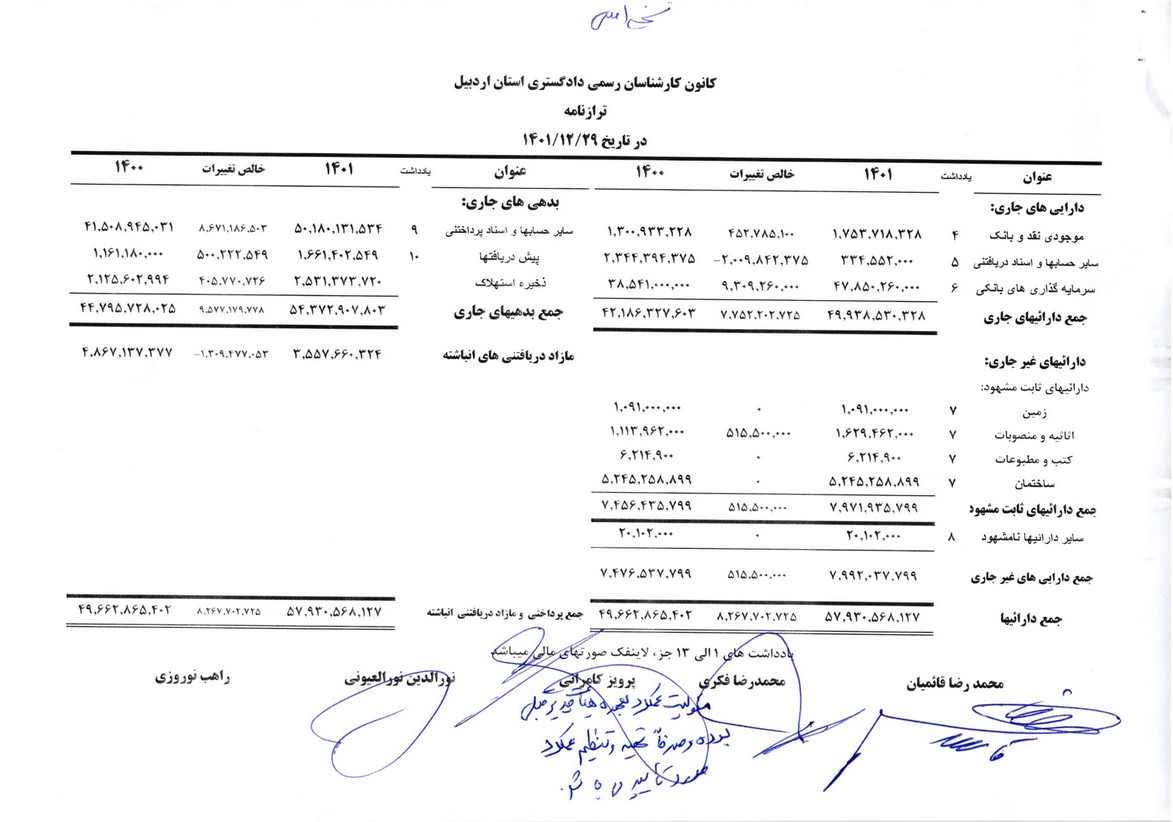 نسخه اصلی
کانون کارشناسان رسمی دادگستری استان اردبیل
ترازنامه
در تاریخ ۱۴۰۱/۱۲/۲۹
عنوان یادداشت ۱۴۰۱ خالص تغییرات ۱۴۰۰ عنوان یادداشت ۱۴۰۱ خالص تغییرات ۱۴۰۰
دارایی های جاری: بدهی های جاری:
موجودی نقد و بانک ۴ ۱,۷۵۳,۷۱۸,۳۲۸ ۴۵۲,۷۸۵,۱۰۰ ۱,۳۰۰,۹۳۳,۲۲۸ سایر حسابها و اسناد پرداختنی ۹ ۵۰,۱۸۰,۱۳۱,۵۳۴ ۸,۶۷۱,۱۸۶,۵۰۳ ۴۱,۵۰۸,۹۴۵,۰۳۱
سایر حسابها و اسناد دریافتنی ۵ ۳۳۴,۵۵۲,۰۰۰ -۲,۰۰۹,۸۴۲,۳۷۵ ۲,۳۴۴,۳۹۴,۳۷۵ پیش دریافتها ۱۰ ۱,۶۶۱,۴۰۲,۵۴۹ ۵۰۰,۲۲۲,۵۴۹ ۱,۱۶۱,۱۸۰,۰۰۰
سرمایه گذاری های بانکی ۶ ۴۷,۸۵۰,۲۶۰,۰۰۰ ۹,۳۰۹,۲۶۰,۰۰۰ ۳۸,۵۴۱,۰۰۰,۰۰۰ ذخیره استهلاک ۲,۵۳۱,۳۷۳,۷۲۰ ۴۰۵,۷۷۰,۷۲۶ ۲,۱۲۵,۶۰۲,۹۹۴
جمع دارائیهای جاری ۴۹,۹۳۸,۵۳۰,۳۲۸ ۷,۷۵۲,۲۰۲,۷۲۵ ۴۲,۱۸۶,۳۲۷,۶۰۳ جمع بدهیهای جاری ۵۴,۳۷۲,۹۰۷,۸۰۳ ۹,۵۷۷,۱۷۹,۷۷۸ ۴۴,۷۹۵,۷۲۸,۰۲۵
دارائیهای غیر جاری: مازاد دریافتنی های انباشته ۳,۵۵۷,۶۶۰,۳۲۴ -۱,۳۰۹,۴۷۷,۰۵۳ ۴,۸۶۷,۱۳۷,۳۷۷
دارائیهای ثابت مشهود:
زمین ۷ ۱,۰۹۱,۰۰۰,۰۰۰ ۰ ۱,۰۹۱,۰۰۰,۰۰۰
اثاثیه و منصوبات ۷ ۱,۶۲۹,۴۶۲,۰۰۰ ۵۱۵,۵۰۰,۰۰۰ ۱,۱۱۳,۹۶۲,۰۰۰
کتب و مطبوعات ۷ ۶,۲۱۴,۹۰۰ ۰ ۶,۲۱۴,۹۰۰
ساختمان ۷ ۵,۲۴۵,۲۵۸,۸۹۹ ۰ ۵,۲۴۵,۲۵۸,۸۹۹
جمع دارائیهای ثابت مشهود ۷,۹۷۱,۹۳۵,۷۹۹ ۵۱۵,۵۰۰,۰۰۰ ۷,۴۵۶,۴۳۵,۷۹۹
سایر دارائیها نامشهود ۸ ۲۰,۱۰۲,۰۰۰ ۰ ۲۰,۱۰۲,۰۰۰
جمع دارایی های غیر جاری ۷,۹۹۲,۰۳۷,۷۹۹ ۵۱۵,۵۰۰,۰۰۰ ۷,۴۷۶,۵۳۷,۷۹۹
جمع دارائیها ۵۷,۹۳۰,۵۶۸,۱۲۷ ۸,۲۶۷,۷۰۲,۷۲۵ ۴۹,۶۶۲,۸۶۵,۴۰۲ جمع پرداختی و مازاد دریافتنی انباشته ۵۷,۹۳۰,۵۶۸,۱۲۷ ۸,۲۶۷,۷۰۲,۷۲۵ ۴۹,۶۶۲,۸۶۵,۴۰۲
یادداشت های ۱ الی ۱۳ جزء لاینفک صورتهای مالی میباشد
محمد رضا قائمیان محمدرضا فکری پرویز کامرانی نورالدین نورالعیونی راهب نوروزی
مسئولیت عملکرد بعهده هیأت مدیره قبلی
بوده و صرفاً تهیه و تنظیم عملکرد
مورد تأیید می باشد.